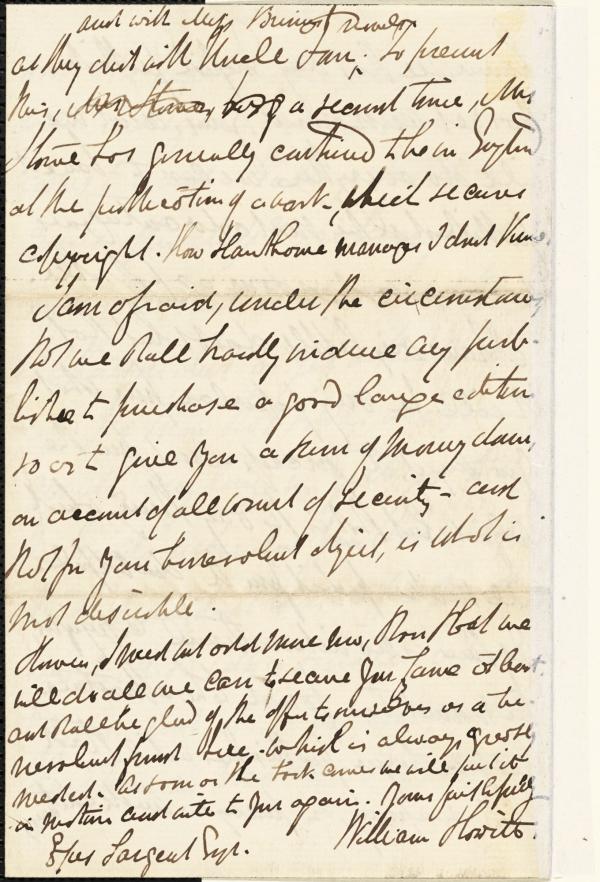 and with Miss Bremer's novels,
as they did with Uncle Tom; to prevent
this, Mrs Stowe, being a second time, Mrs
Stowe has generally contrived to be in England
at the publication of a work, which secures
copyright. How Hawthorne manages I don't know.
I am afraid, under the circumstances
that we shall hardly induce any pub-
lisher to purchase a good large edition
so as to give you a sum of money down,
on account of all want of security - and
that for your benevolent object, is what is
most desirable.
However, I need not add more now, than that we
will do all we can to secure your fame at least,
and shall be glad of the offer to ourselves as a be-
nevolent fund here - which is always greatly
needed. As soon as the book comes we will put it
in motion and write to you again. Yours faithfully
William Howitt.
Epes Sargent Esqr.